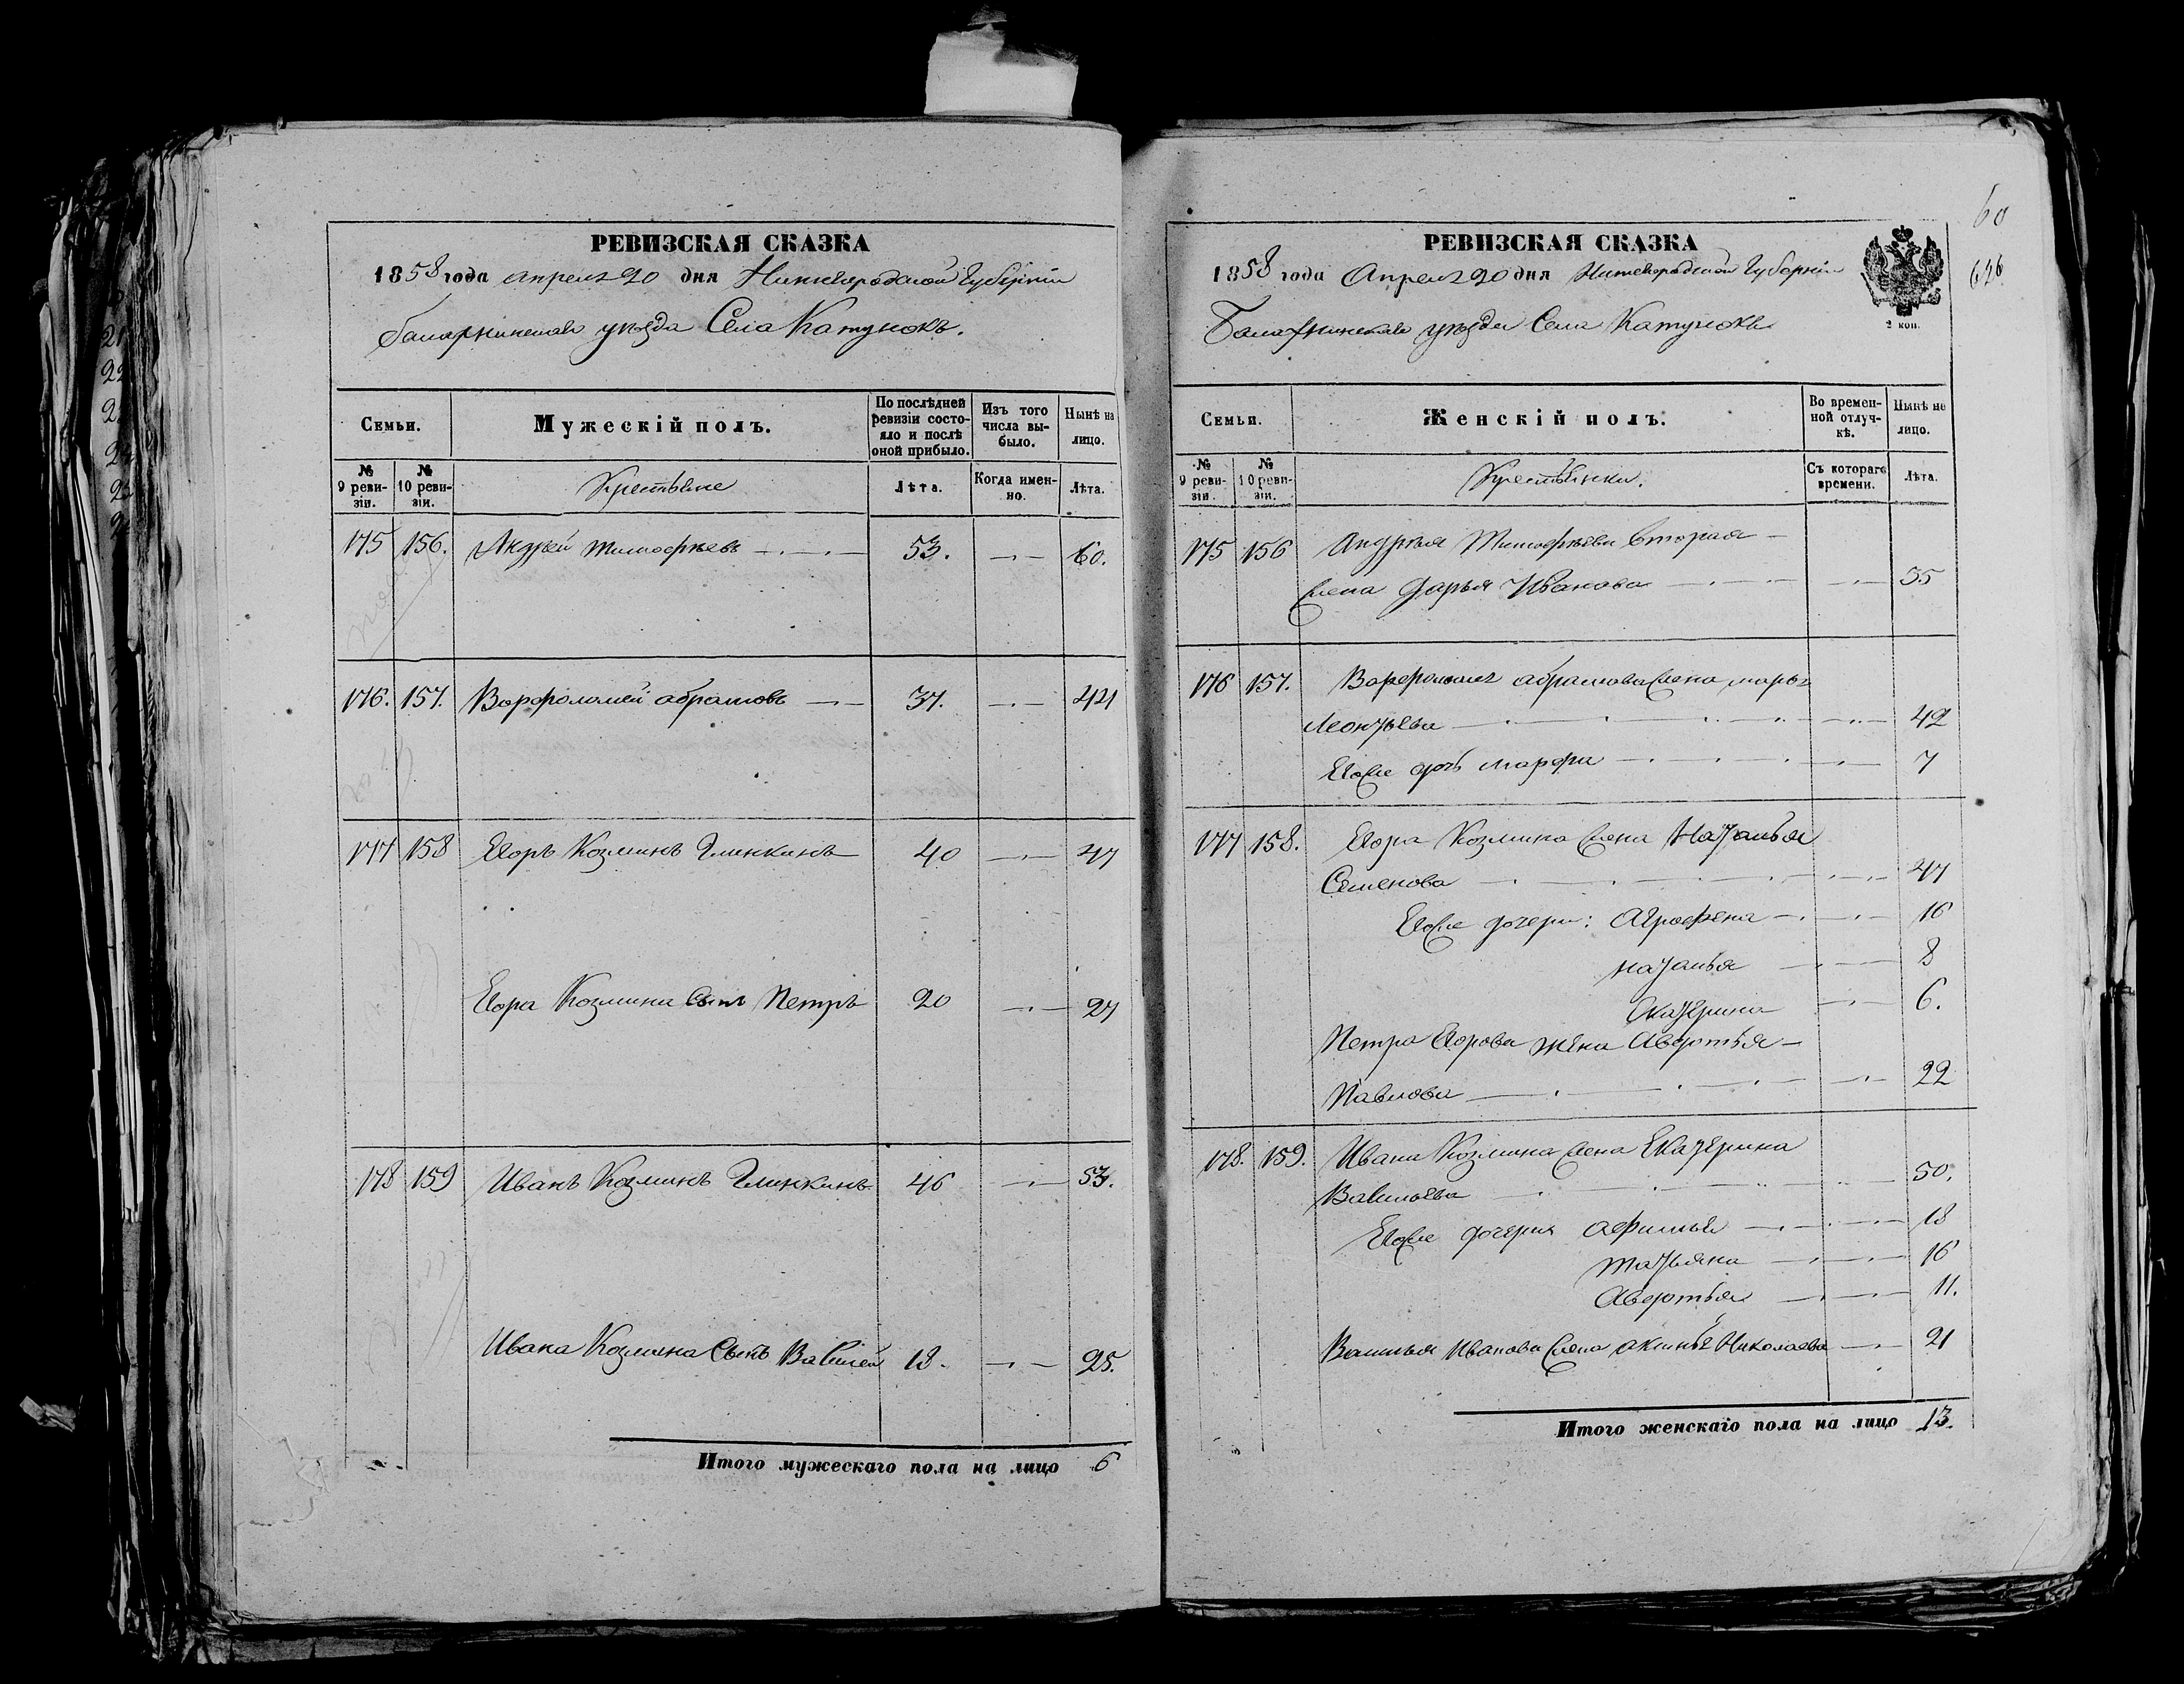 РЕВИЗСКАЯ СКАЗКА
1858 года апреля 20 дня Нижегородской Губернiи
Балахнинскаго уѣзда Села Катунокъ.
Семьи.
Мужескій полъ.
По послѣдней ревизіи состояло и послѣ оной прибыло.
Изъ того числа выбыло.
Нынѣ на лицо.
№ 9 ревизіи.
№ 10 ревизіи.
Крестьяне
Лѣта.
Когда именно.
Лѣта.
175 156. Андрей Тимофѣевъ 53. 60.
176. 157. Ворфоломей Абрамовъ 37. 44
177 158 Егоръ Козминъ Глинкинъ 40 47
Егора Козмина Сынъ Петръ 20 27
178 159 Иванъ Козминъ Глинкинъ 46 53.
Ивана Козмина Сынъ Василей 18. 25.
Итого мужескаго пола на лицо 6
60
626
РЕВИЗСКАЯ СКАЗКА
1858 года Апреля 20 дня Нижегородской Губернiи
Балахнинскаго уѣзда Села Катунокъ
2 коп.
Семьи.
Женскій полъ.
Во временной отлучкѣ.
Нынѣ не лицо.
№ 9 ревизіи.
№ 10 ревизіи.
Крестьянки.
Съ котораго времени.
Лѣта.
175 156 Андрѣя Тимофѣева вторая
жена Дарья Иванова 55
176 157. Ворфоломея Абрамова жена Марья
Леонтьева 42
Его же дочь Марфа 7
177 158. Егора Козмина жена Наталья
Семенова 47
Его же дочери: Аграфена 16
Наталья 8
Екатерина 6.
Петра Егорова жена Авдотья
Павлова 22
178. 159. Ивана Козмина жена Екатерина
Васильева 50.
Его же дочери Афимья 18
Татьяна 16
Авдотья 11.
Василья Иванова жена Акинья Николаева 21
Итого женскаго пола на лицо 13.